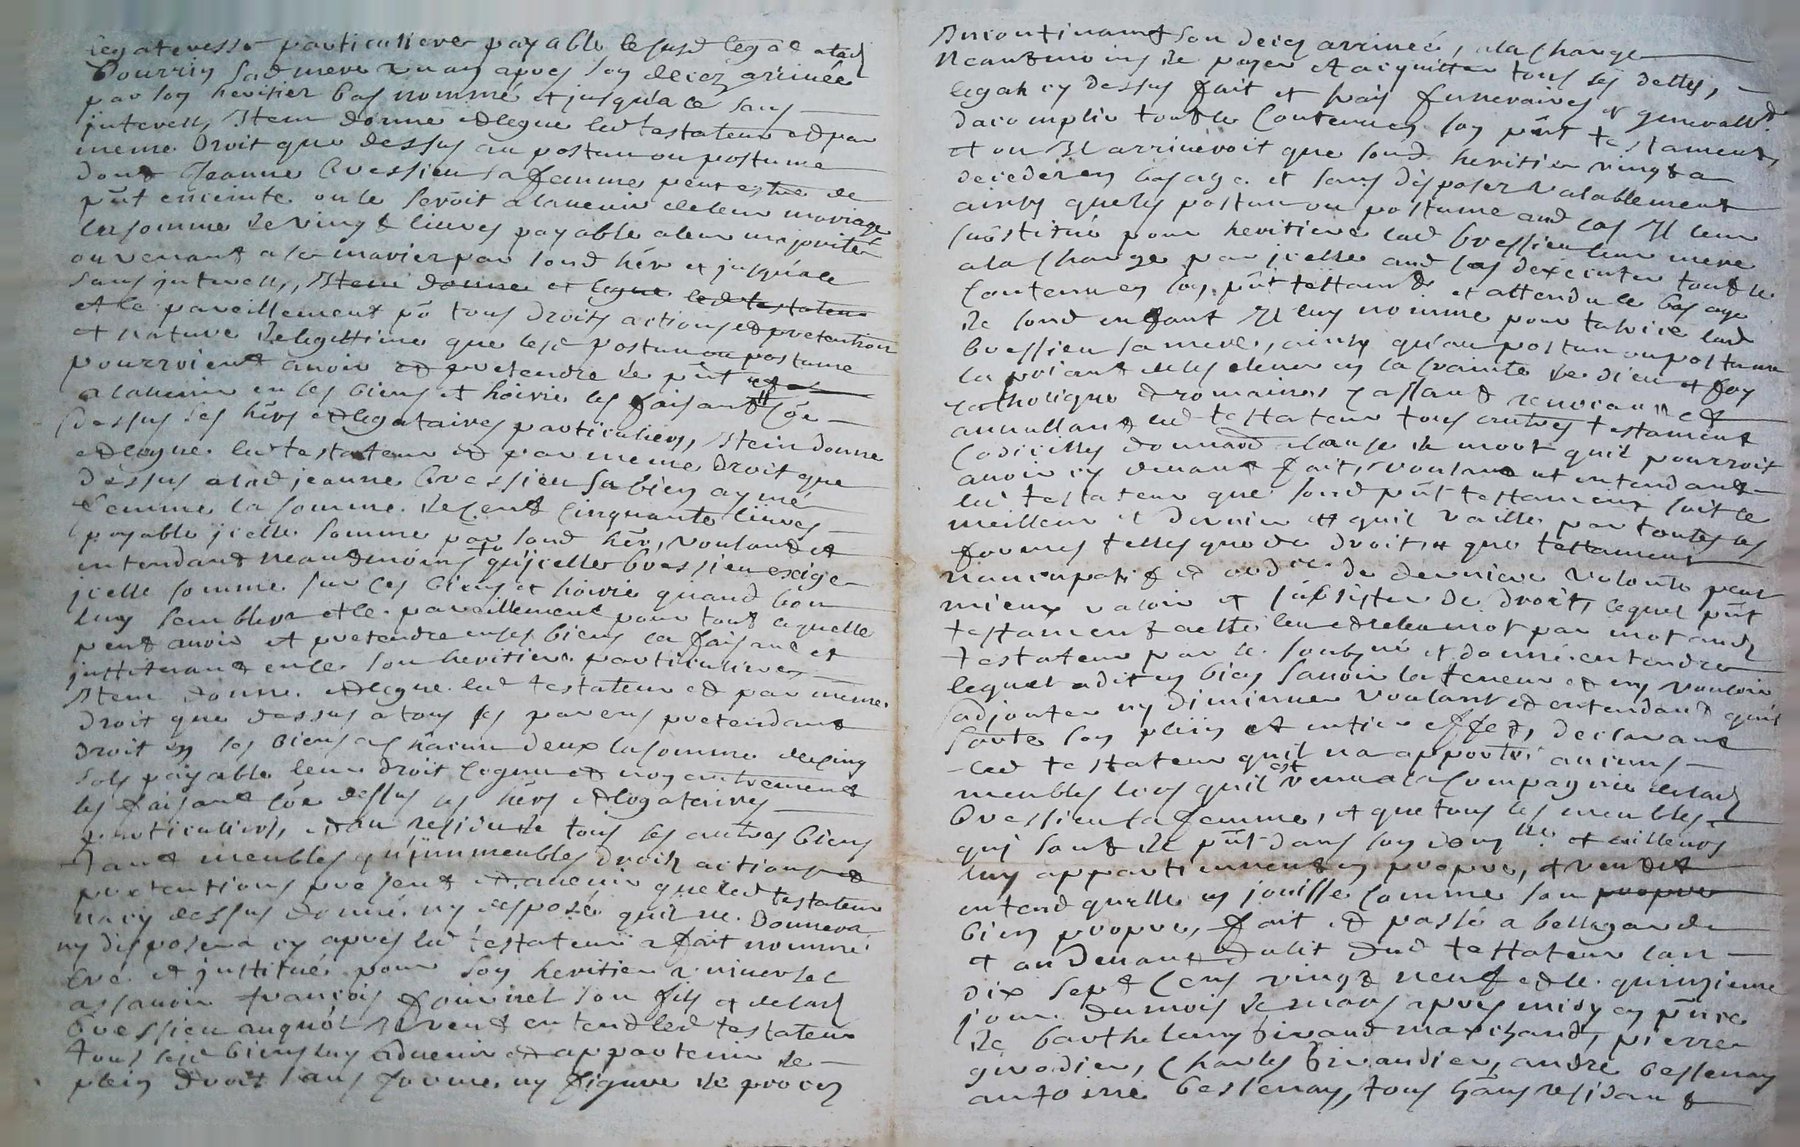 legateresse particuliere payable lesusd legat alad
Pourrin sad mere un an apres son decez arrivée
par son heritier bas nommé et jusqu'a ce sans
jnterest, Item donne et legue led testateur et par
meme Droit que dessus au postum ou postume
dont Jeanne Bressieu sa femme peut estre de
pnt enceinte ou le seroit a lavenir de leur mariage
la somme de vingt livres payable a leur majorité
ou venant a se marier par sond hér et jusqu'a ce
sans jnterest, Item donne et legue led testateur
et ce pareillement po tous droits actions et pretentions
et nature de legittime que lesd postum ou postume
pourroient avoir et pretendre de pnt et
a lavenir en ses biens et hoirie les faisant
dessus ses hérs et legataires particuliers, Item donne
et legue led testateur et par meme Droit que
dessus alad jeanne Bressieu sa bien aymé
femme la somme de cent cinquante livres
payable jcelle somme par sond hér, voulant et
entendant neantmoins qu'jcelle bressieu exige
jcelle somme sur ses biens et hoirie quand bon
luy semblera et ce pareillement pour tout ce quelle
peut avoir et pretendre en ses biens la faisant et
jnstituant en ce son heritiere particuliere
Item donne et legue led testateur et par meme
Droit que dessus a tous ses parens pretendant
droit en ses biens a chacun deux la somme de cinq
sols payable leur droit cognu et non autrement
les faisant dessus ses hérs et legataires
particuliers, et au residu de tous ses autres biens
tant meubles qu'jmmeubles droits actions et
pretentions presents et avenir que led testateur
na cy dessus donné ny disposé quil ne Donnera
ny disposera cy apres led testateur a fait nommé
cré et jnstitué pour son heritier universel
a savoir françois son fils et de lad
Bressieu auquel Il veut entend led testateur
tous sesd biens luy advenir et appartenir de
plein droit sans forme ny figure de procez
Incontinant son decez arrivée, a la charge
Neantmoins de payer et acquitter tous ses dettes,
legats cy dessus fait et frais funeraires et generallt
dacomplir tout le Contenu en son pnt testament,
et ou Il arriveroit que sond heritier vingt a
deceder en bas age et sans disposer valablement
ainsy que les postum ou postume aud cas Il leur
substitue pour heritiere lad bressieu leur mere
a la charge par jcelle aud cas dexecuter tout le
Contenu en son pnt testament et attendu le bas age
de sond enfant Il luy nomme pour tutrice lad
bressieu sa mere, ainsy qu'au postum ou postume
la priant de les elever en la crainte de Dieu et foy
catholique et romaine, cassant revocant et
annullant led testateur tous autres testament
Codicilles donnations a cause de mort quil pourroit
avoir cy devant fait, voulant et entendant
led testateur que sond pnt testament soit le
meilleur et dernier et quil vaille par toutes les
formes telles que de droit, et que testament
nuncupatif et ord.re de derniere volonté peut
mieux valoir et subsister de Droit, lequel pnt
testament a esté leu et releu mot par mot aud
testateur par le soubzné et donné entendre
lequel a dit en bien savoir la teneur et ny vouloir
adjouter ny diminuer voulant et entendant quil
sorte son plein et entier effet, declarant
led testateur quil na apporté aucuns
meubles lors quil est venu a la Compagnie de lad
Bressieu sa femme, et que tous les meubles
qui sont de pnt dans son dom.lle et ailleurs
luy appartiennent en propre, et veut et
entend quelle en jouisse comme son propre
bien propre, fait et passé a bellegarde
et au Devant du lit dud testateur lan
dix sept cens vingt neuf et le quinzieme
jour du mois de mars apres midy en pnce
de barthelemy Girand marchand, pierre
grodier, Charles Girandier, andré bessenay
antoine bessenay, tous habns residant